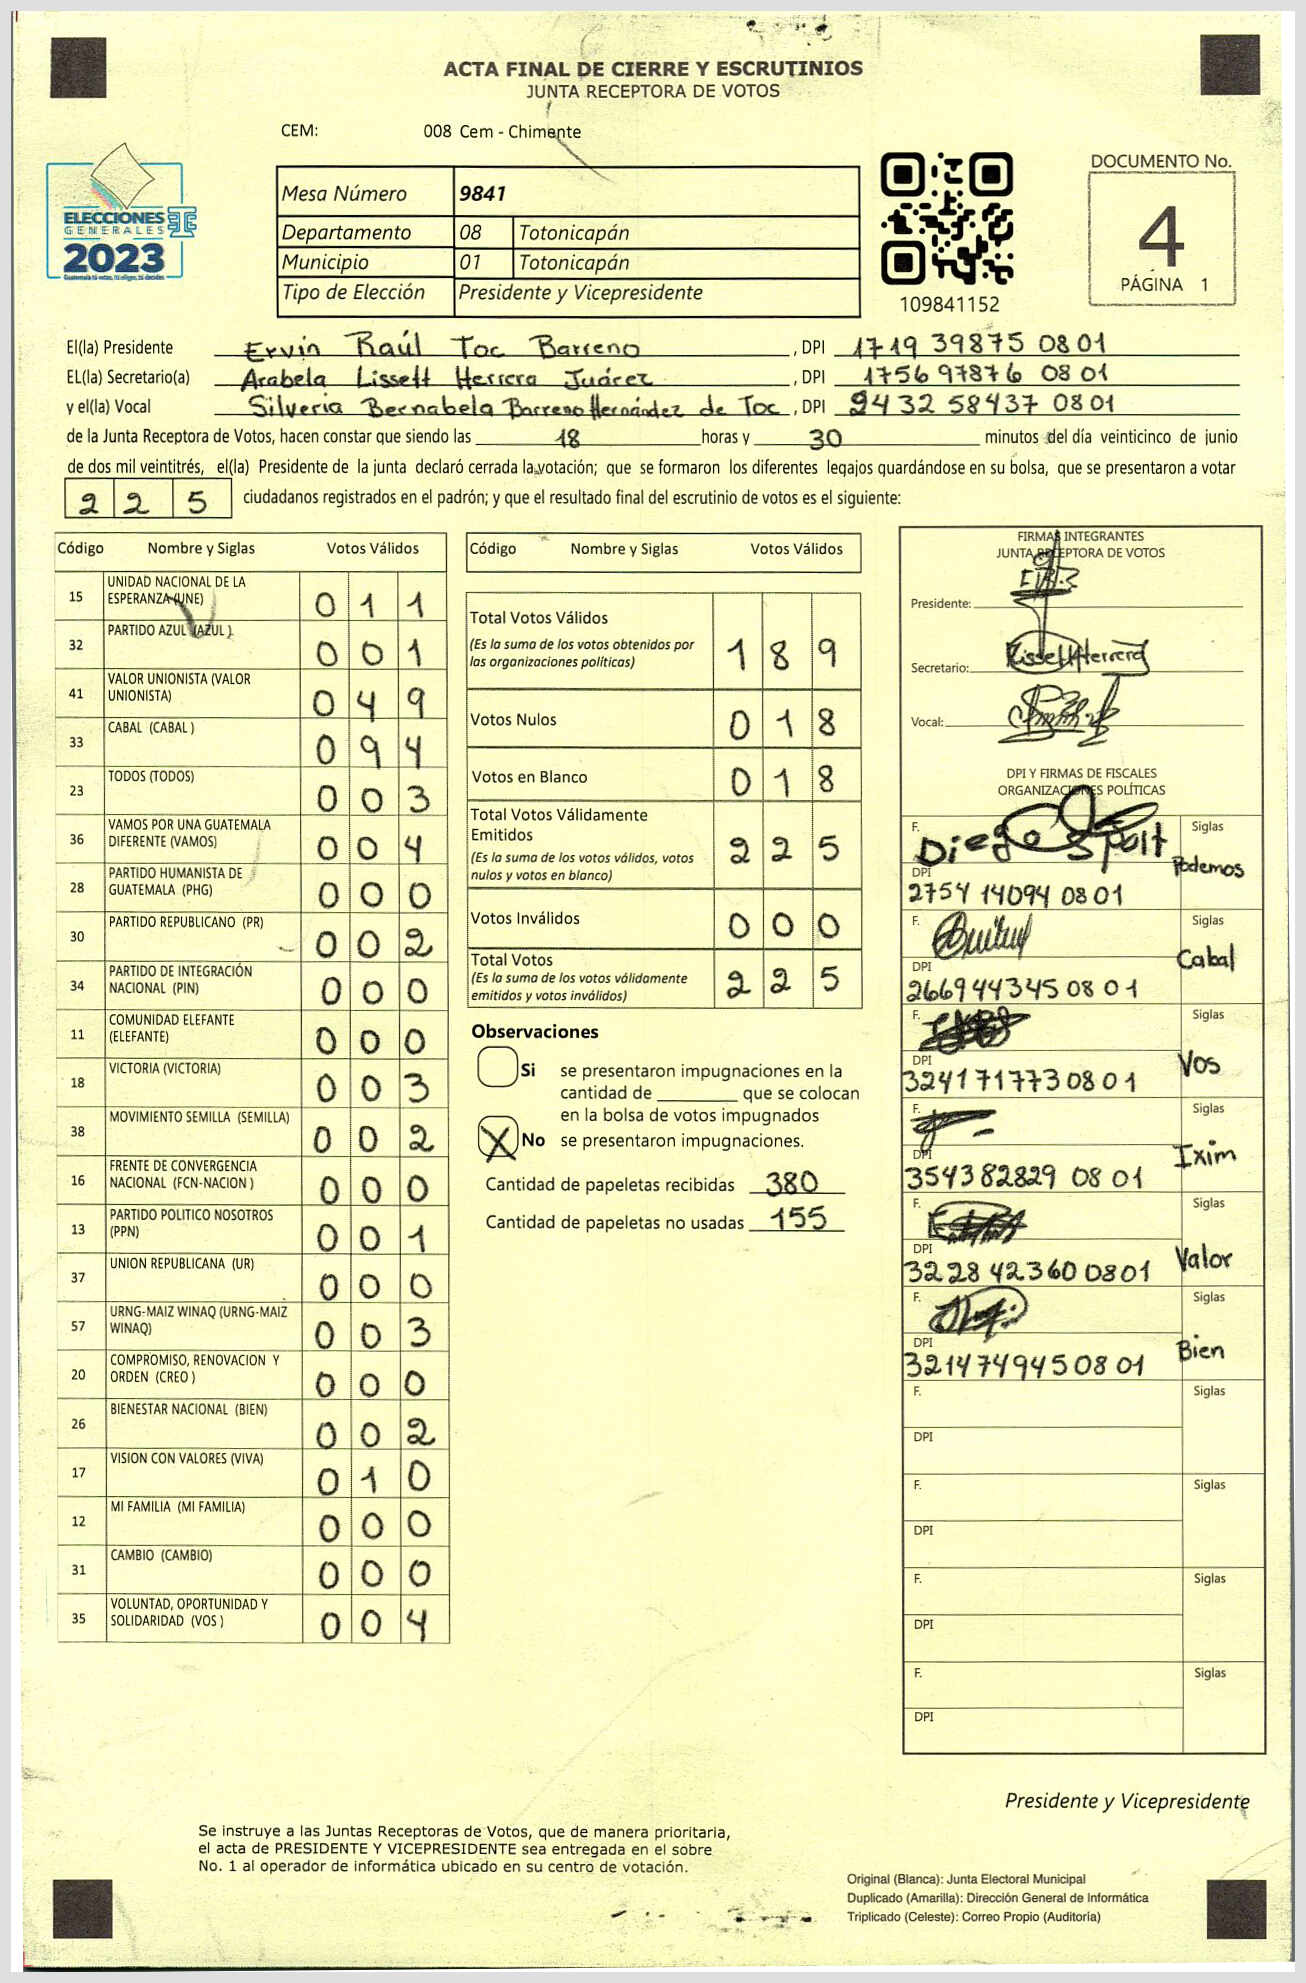 ACTA FINAL DE CIERRE Y ESCRUTINIOS
JUNTA RECEPTORA DE VOTOS
CEM: 008 Cem - Chimente
ELECCIONES
GENERALES
2023
Mesa Número 9841
Departamento 08 Totonicapán
Municipio 01 Totonicapán
Tipo de Elección Presidente y Vicepresidente
109841152
DOCUMENTO No.
4
PÁGINA 1
El(la) Presidente Ervin Raúl Toc Barreno, DPI 1719 39875 0801
EL(la) Secretario(a) Arabela Lissett Herrera Juárez, DPI 1756 97876 0801
y el(la) Vocal Silveria Bernabela Barreno Hernández de Toc, DPI 2432 58437 0801
de la Junta Receptora de Votos, hacen constar que siendo las 18 horas y 30 minutos del día veinticinco de junio
de dos mil veintitrés, el(la) Presidente de la junta declaró cerrada la votación; que se formaron los diferentes legajos guardándose en su bolsa, que se presentaron a votar
225 ciudadanos registrados en el padrón; y que el resultado final del escrutinio de votos es el siguiente:
Código Nombre y Siglas Votos Válidos
15 UNIDAD NACIONAL DE LA
ESPERANZA (UNE) 011
32 PARTIDO AZUL (AZUL ) 001
41 VALOR UNIONISTA (VALOR
UNIONISTA) 049
33 CABAL (CABAL ) 094
23 TODOS (TODOS) 003
36 VAMOS POR UNA GUATEMALA
DIFERENTE (VAMOS) 004
28 PARTIDO HUMANISTA DE
GUATEMALA (PHG) 000
30 PARTIDO REPUBLICANO (PR) 002
34 PARTIDO DE INTEGRACIÓN
NACIONAL (PIN) 000
11 COMUNIDAD ELEFANTE
(ELEFANTE) 000
18 VICTORIA (VICTORIA) 003
38 MOVIMIENTO SEMILLA (SEMILLA) 002
16 FRENTE DE CONVERGENCIA
NACIONAL (FCN-NACION ) 000
13 PARTIDO POLITICO NOSOTROS
(PPN) 001
37 UNION REPUBLICANA (UR) 000
57 URNG-MAIZ WINAQ (URNG-MAIZ
WINAQ) 003
20 COMPROMISO, RENOVACION Y
ORDEN (CREO ) 000
26 BIENESTAR NACIONAL (BIEN) 002
17 VISION CON VALORES (VIVA) 010
12 MI FAMILIA (MI FAMILIA) 000
31 CAMBIO (CAMBIO) 000
35 VOLUNTAD, OPORTUNIDAD Y
SOLIDARIDAD (VOS ) 004
Código Nombre y Siglas Votos Válidos
Total Votos Válidos 189
(Es la suma de los votos obtenidos por
las organizaciones políticas)
Votos Nulos 018
Votos en Blanco 018
Total Votos Válidamente
Emitidos 225
(Es la suma de los votos válidos, votos
nulos y votos en blanco)
Votos Inválidos 000
Total Votos 225
(Es la suma de los votos válidamente
emitidos y votos inválidos)
Observaciones
Si se presentaron impugnaciones en la
cantidad de ________ que se colocan
en la bolsa de votos impugnados
X No se presentaron impugnaciones.
Cantidad de papeletas recibidas 380
Cantidad de papeletas no usadas 155
FIRMAS INTEGRANTES
JUNTA RECEPTORA DE VOTOS
Presidente:
Secretario: Lissett Herrera
Vocal:
DPI Y FIRMAS DE FISCALES
ORGANIZACIONES POLÍTICAS
F. Diego Siglas
DPI Podemos
2754 14094 0801
F. Siglas
DPI Cabal
2669443450801
F. Siglas
DPI Vos
3241717730801
F. Siglas
DPI Ixim
354382829 0801
F. Siglas
DPI Valor
3228 42360 0801
F. Siglas
DPI Bien
3214749450801
F. Siglas
DPI
F. Siglas
DPI
F. Siglas
DPI
F. Siglas
DPI
Presidente y Vicepresidente
Se instruye a las Juntas Receptoras de Votos, que de manera prioritaria,
el acta de PRESIDENTE Y VICEPRESIDENTE sea entregada en el sobre
No. 1 al operador de informática ubicado en su centro de votación.
Original (Blanca): Junta Electoral Municipal
Duplicado (Amarilla): Dirección General de Informática
Triplicado (Celeste): Correo Propio (Auditoría)